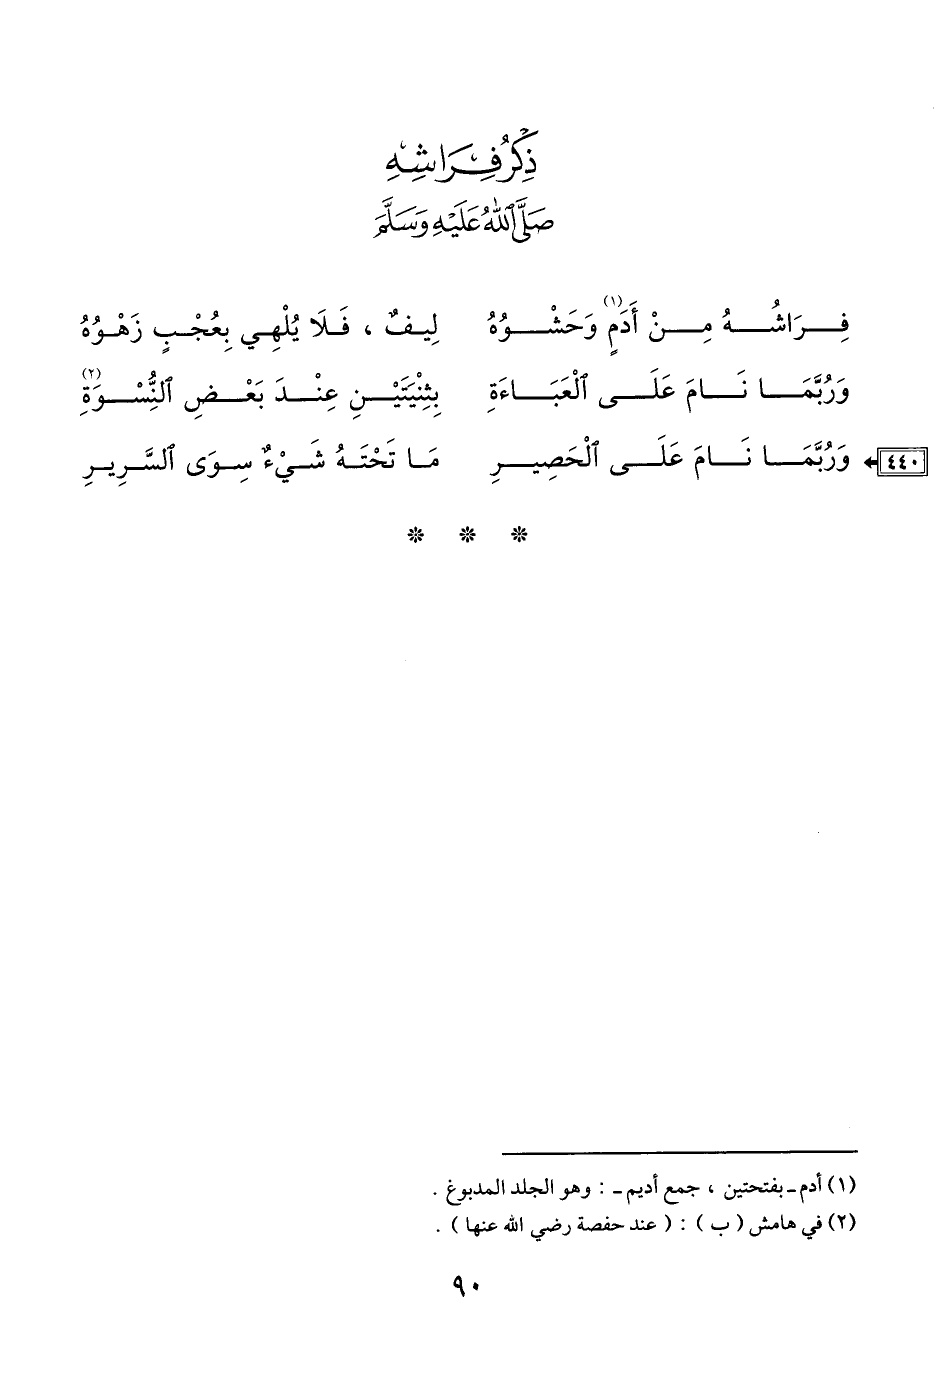 ذِكْرُ فِرَاشِهِ
صَلَّى ٱللهُ عَلَيْهِ وَسَلَّمَ
فِـرَاشُـهُ مِـنْ أَدَمٍ(١) وَحَشْـوُهُ لِيـفٌ ، فَـلَا يُلْهِـي بِعُجْـبٍ زَهْـوُهُ
وَرُبَّمَـا نَـامَ عَلَـى ٱلْعَبَـاءَةِ بِثِنْيَتَيْـنِ عِنْـدَ بَعْـضِ ٱلنِّسْـوَةِ(٢)
٤٤٠ وَرُبَّمَـا نَـامَ عَلَـى ٱلْحَصِيـرِ مَـا تَحْتَـهُ شَـيْءٌ سِـوَى ٱلسَّـرِيـرِ
(١) أدم ـ بفتحتين ، جمع أديم ـ : وهو الجلد المدبوغ .
(٢) في هامش ( ب ) : ( عند حفصة رضي الله عنها ) .
٩٠